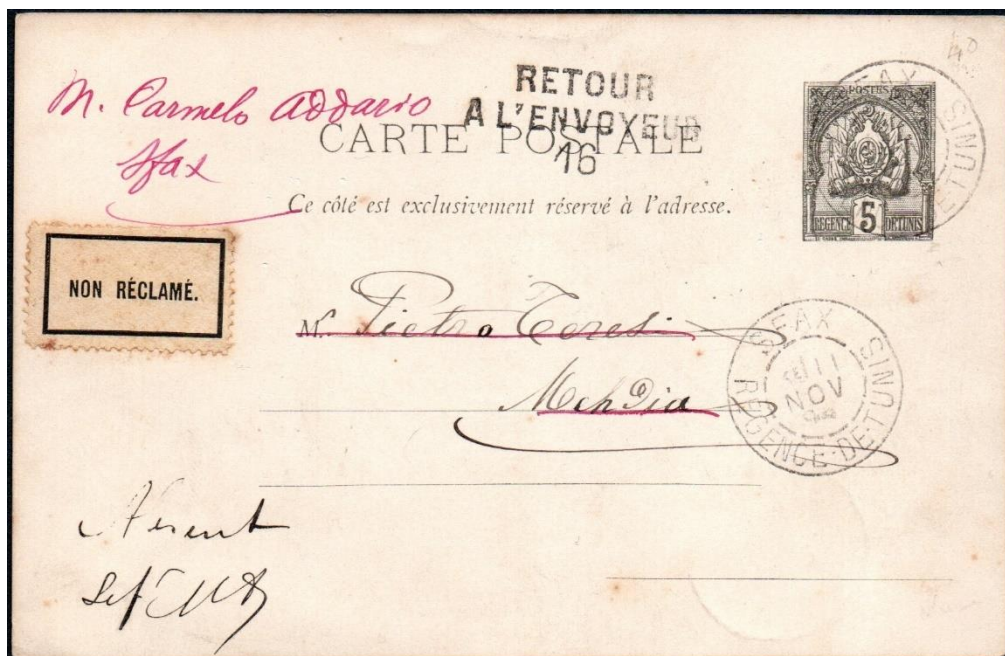 M. Carmelo Addario
Sfax
RETOUR
A L'ENVOYEUR
16
CARTE POSTALE
Ce côté est exclusivement réservé à l'adresse.
POSTES
REGENCE 5 DE TUNIS
SFAX
NON RÉCLAMÉ.
M. Pietro Teresi
Mehdia
SFAX
11
NOV
REGENCE-DE-TUNIS